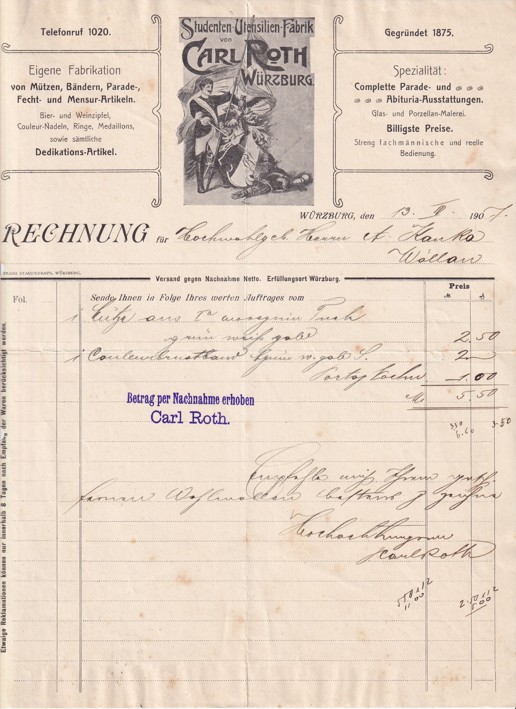 Telefonruf 1020.
Eigene Fabrikation
von Mützen, Bändern, Parade-,
Fecht- und Mensur-Artikeln.
Bier- und Weinzipfel,
Couleur-Nadeln, Ringe, Medaillons,
sowie sämtliche
Dedikations-Artikel.
Studenten-Utensilien-Fabrik
von
CARL ROTH
WÜRZBURG.
Gegründet 1875.
Spezialität:
Complette Parade- und
Abituria-Ausstattungen.
Glas- und Porzellan-Malerei.
Billigste Preise.
Streng fachmännische und reelle
Bedienung.
WÜRZBURG, den 13. II. 1907.
RECHNUNG für Hochwohlgeb. Herrn A. Hanka
Wöllan
Versand gegen Nachnahme Netto. Erfüllungsort Würzburg.
Preis
Fol.
Sende Ihnen in Folge Ihres werten Auftrages vom
1 aus Ia Tuch
grün weiß gold 2.50
1 Couleurbrustband grün w. gold S. 2
Porto 1.00
M 5.50
Betrag per Nachnahme erhoben
Carl Roth.
3.50
6.60
Empfehle mich Ihrem
fernern Wohlwollen bestens & zeichne
Hochachtungsvoll
Karl Roth
Etwaige Reklamationen können nur innerhalb 8 Tagen nach Empfang der Waren berücksichtigt werden.